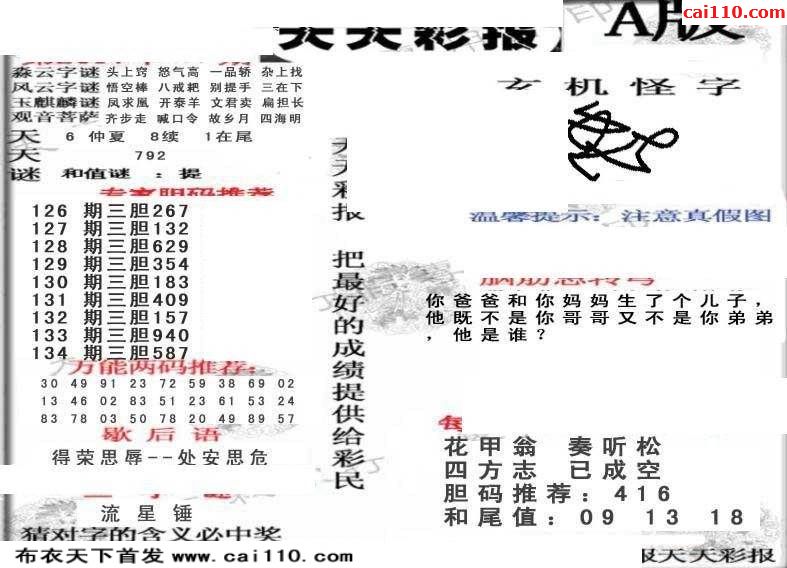 cai110.com
天天彩报 A版
淼云字谜 头上窍 怒气高 一品轿 杂上找
风云字谜 悟空棒 八戒耙 别提手 三在下
玉麒麟谜 凤求凰 开泰羊 文君卖 扁担长
观音菩萨 齐步走 喊口令 故乡月 四海明
天 6 仲夏 8续 1在尾
天 792
谜 和值谜 : 提
专家胆码推荐
126 期三胆267
127 期三胆132
128 期三胆629
129 期三胆354
130 期三胆183
131 期三胆409
132 期三胆157
133 期三胆940
134 期三胆587
万能两码推荐:
30 49 91 23 72 59 38 69 02
13 46 02 83 51 23 61 53 24
83 78 03 50 78 20 49 89 57
歇后语
得荣思辱--处安思危
流星锤
猜对字的含义必中奖
布衣天下首发 www.cai110.com
天天彩报 把最好的成绩提供给彩民
玄机怪字
温馨提示: 注意真假图
脑筋急转弯
你爸爸和你妈妈生了个儿子，
他既不是你哥哥又不是你弟弟
，他是谁？
花甲翁 奏听松
四方志 已成空
胆码推荐: 416
和尾值: 09 13 18
报天天彩报